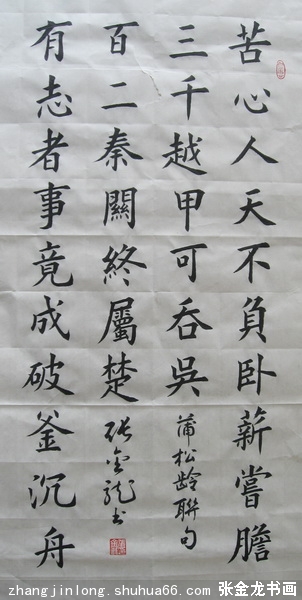 苦心人天不負卧薪嘗膽
三千越甲可吞吳
蒲松龄聯句
百二秦關終屬楚
张金龙书
有志者事竟成破釜沉舟
zhangjinlong.shuhua66.com 张金龙书画